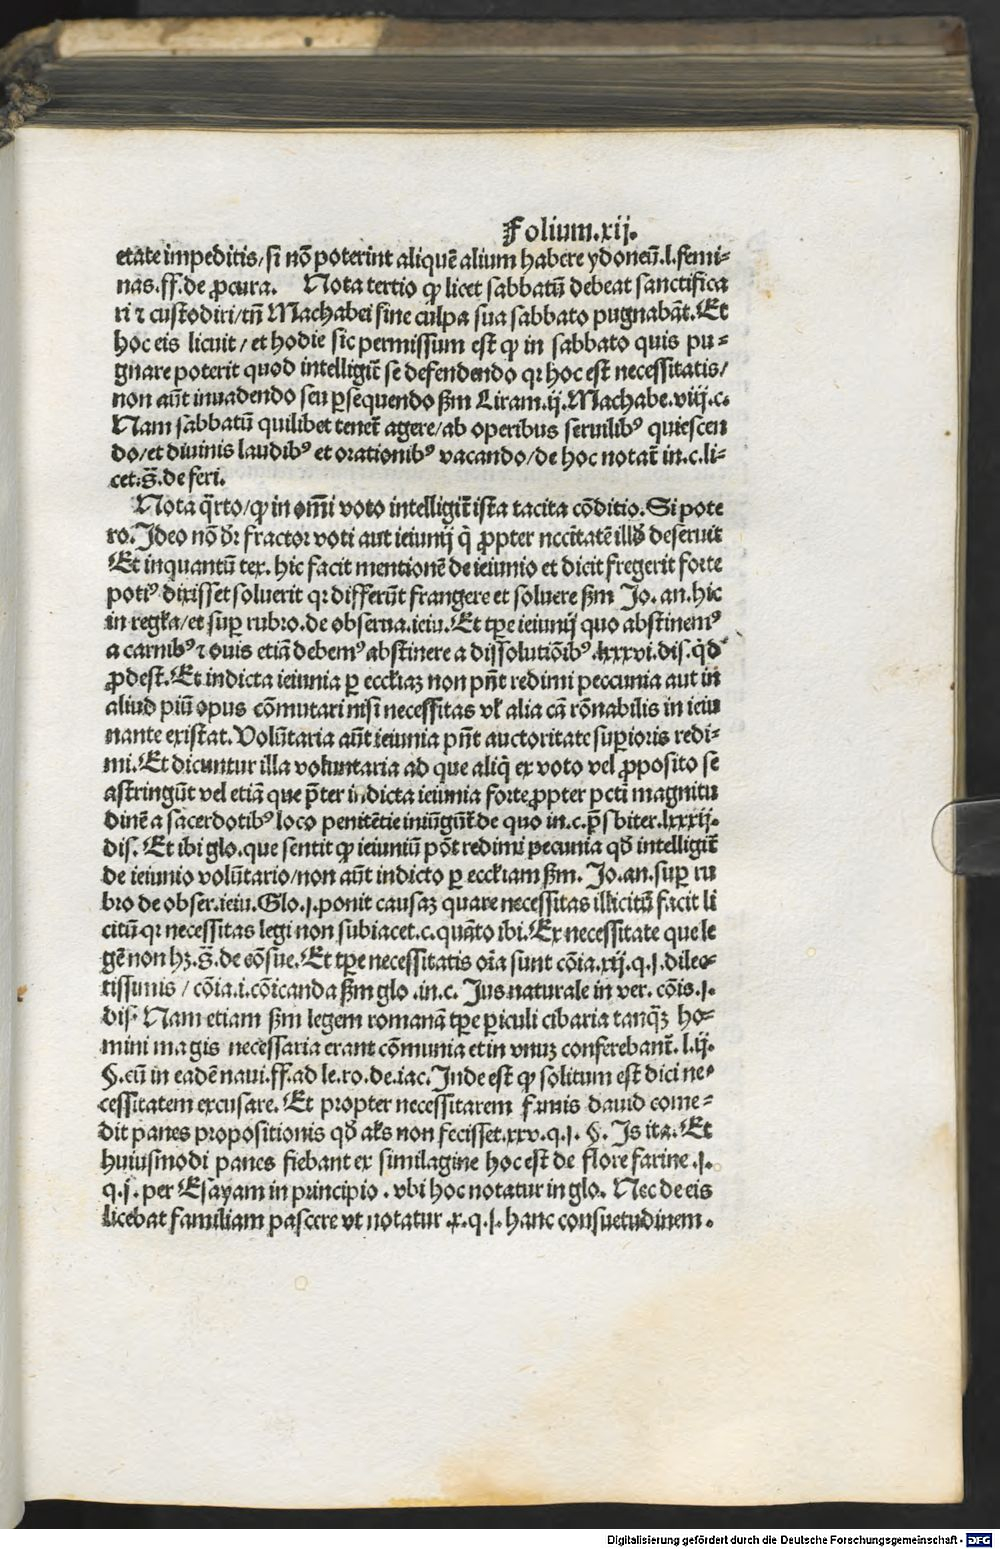 Folium.xij.
etate impeditis/si nō poterint aliquē alium habere ydoneū.l.femi⸗
nas.ff.de ꝓcura. Nota tertio ꝙ licet sabbatū debeat sanctifica
ri ⁊ custodiri/tn̄ Machabei sine culpa sua sabbato pugnabāt.Et
hoc eis licuit/et hodie sic permissum est ꝙ in sabbato quis pu⸗
gnare poterit quod intelligit̄ se defendendo qꝛ hoc est necessitatis/
non aūt inuadendo seu ꝑsequendo ẜm Liram.ij.Machabe.viij.c.
Nam sabbatū quilibet tenet̄ agere/ab operibus seruilibꝰ quiescen
do/et diuinis laudibꝰ et orationibꝰ vacando/de hoc notat̄ in.c.li⸗
cet.s̄.de feri.
Nota q̄rto/ꝙ in om̄i voto intelligit̄ ista tacita cōditio.Si pote
ro.Ideo nō dr̄ fractor voti aut ieiunij q̄ ꝓpter nccītatē illḋ deseruit
Et inquantū tex. hic facit mentionē de ieiunio et dicit fregerit forte
potiꝰ dixisset soluerit qꝛ differūt frangere et soluere ẜm Jo.an.hic
in regl̄a/et suꝑ rubro.de obserua.ieiu.Et tꝑe ieiunij quo abstinemꝰ
a carnibꝰ ⁊ ouis etiā debemꝰ abstinere a dissolutiōibꝰ.lxxxvi.dis.qḋ
ꝓdest.Et indicta ieiunia ꝑ eccl̄iaꝫ non pn̄t redimi peccunia aut in
aliud piū opus cōmutari nisi necessitas vl̄ alia cā rōnabilis in ieiu
nante existat.Volūtaria aūt ieiunia pn̄t auctoritate suꝑioris redi⸗
mi.Et dicuntur illa voluntaria ad que aliq̄ ex voto vel ꝓposito se
astringūt vel etiā que p̄ter indicta ieiunia forte ꝓpter pctī magnitu
dinē a sacerdotibꝰ loco penitētie iniūgūt̄ de quo in.c.p̄sbiter.lxxxij.
dis. Et ibi glo.que sentit ꝙ ieiuniū pōt redimi pecunia qḋ intelligit̄
de ieiunio volūtario/non aūt indicto ꝑ eccl̄iam ẜm. Jo.an.suꝑ ru
bro de obser.ieiu.Glo.j.ponit causaꝫ quare necessitas illicitū facit li
citū.qꝛ necessitas legi non subiacet.c.quāto ibi.Ex necessitate que le
gē non hꝫ.s̄.de cōsue.Et tꝑe necessitatis oīa sunt cōia.xij.q.j.dilec⸗
tissimis / cōia.i.cōicanda ẜm glo .in.c. Jus naturale in ver. cōis.j.
dis. Nam etiam ẜm legem romanā tꝑe ꝑiculi cibaria tanqꝫ̄ ho⸗
mini magis necessaria erant cōmunia et in vnuꝫ conferebant̄. l.ij.
§.cū in eadē naui.ff.ad le.ro.de.iac.Inde est ꝙ solitum est dici ne⸗
cessitatem excusare. Et propter necessitatem famis dauid come⸗
dit panes propositionis qḋ al̄s non fecisset.xxv.q.j. §. Is ita. Et
huiusmodi panes fiebant ex similagine hoc est de flore farine.j.
q.j. per Esayam in principio . vbi hoc notatur in glo. Nec de eis
licebat familiam pascere vt notatur .x.q.j. hanc consuetudinem.
Digitalisierung gefördert durch die Deutsche Forschungsgemeinschaft - DFG